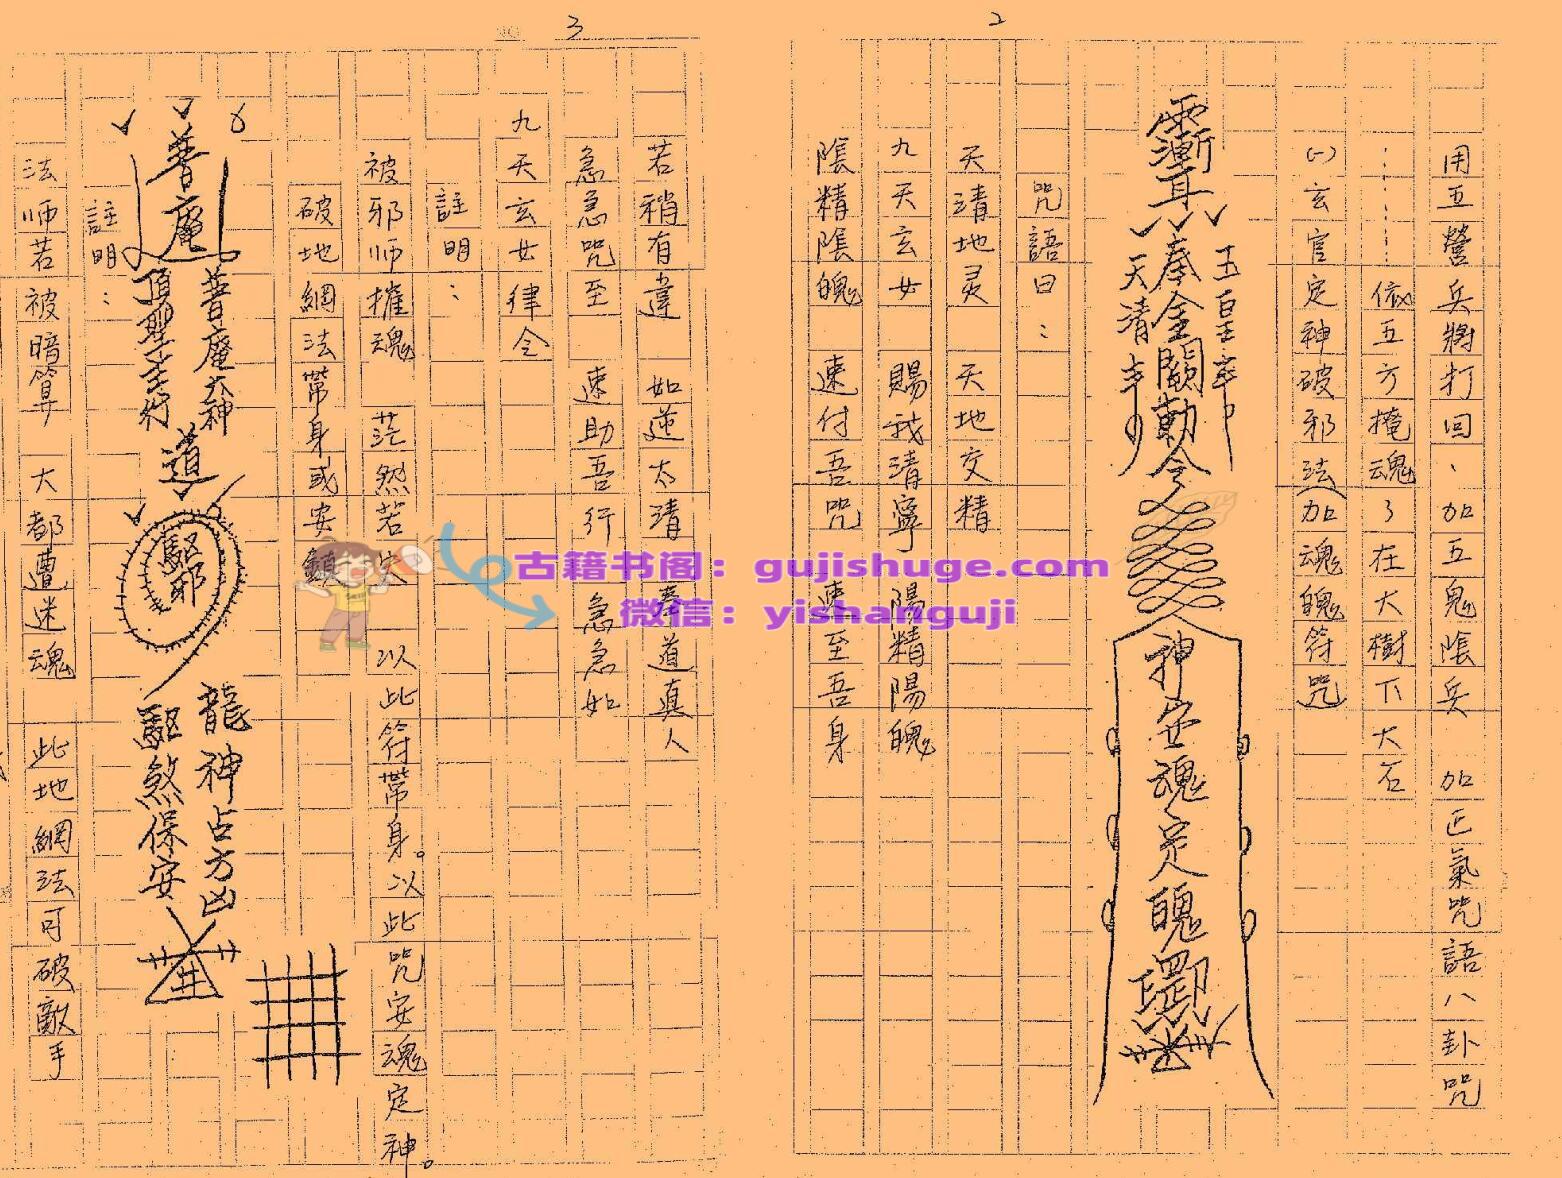 2
用五營兵將打回、加五鬼陰兵 加正氣咒語八卦咒
……依五方掩魂了在大樹下大石
(一)玄官定神破邪法(加魂魄符咒)
玉皇
奉金闕勅令
天清
神安魂定魄
咒語曰：
天清地灵 天地交精
九天玄女 賜我清寧 陽精陽魄
陰精陰魄 速付吾咒 速至吾身
3
若稍有違 如逆太清 奉道真人
急急咒至 速助吾行 急急如
九天玄女律令
註明：
被邪师摧魂 茫然若失 以此符帶身。以此咒安魂定神。
破地網法帶身或安鎮
普庵
普庵大神
頂聖
道
驅邪
龍神占方凶
驅煞保安
註明：
法师若被暗算 大都遭迷魂 此地網法可破敵手
古籍书阁：gujishuge.com
微信：yishanguji